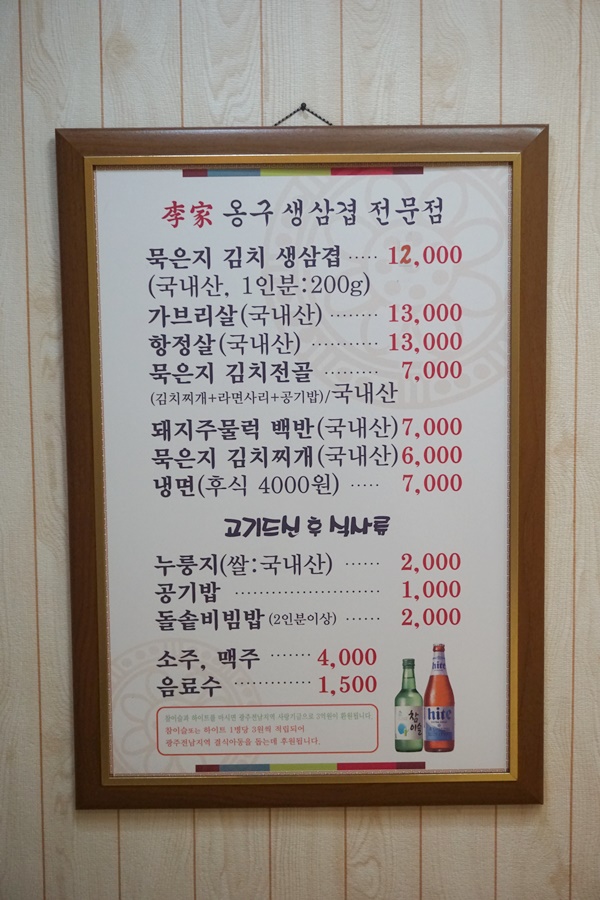 李家 옹구 생삼겹 전문점
묵은지 김치 생삼겹 ····· 12,000
(국내산, 1인분:200g)
가브리살(국내산) ········ 13,000
항정살(국내산) ··········· 13,000
묵은지 김치전골 ········· 7,000
(김치찌개+라면사리+공기밥)/국내산
돼지주물럭 백반(국내산) 7,000
묵은지 김치찌개(국내산) 6,000
냉면(후식 4000원) ····· 7,000
고기드신 후 식사류
누룽지(쌀:국내산) ······ 2,000
공기밥 ························ 1,000
돌솥비빔밥(2인분이상) ······ 2,000
소주, 맥주 ······· 4,000
음료수 ·············· 1,500
참이슬과 하이트를 마시면 광주전남지역 사랑기금으로 3억원이 환원됩니다.
참이슬또는 하이트 1병당 3원씩 적립되어
광주전남지역 결식아동을 돕는데 후원됩니다.
참이슬
hite
hite